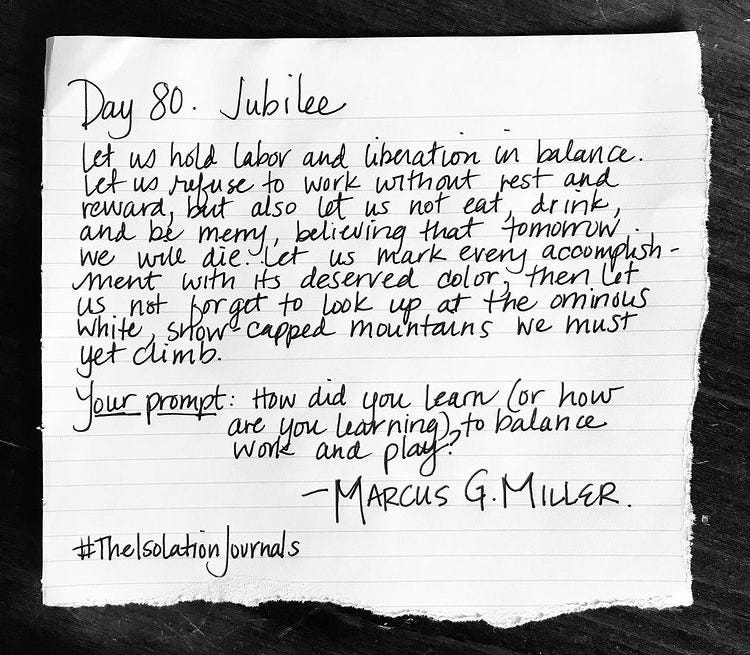 Day 80. Jubilee
Let us hold labor and liberation in balance.
Let us refuse to work without rest and
reward, but also let us not eat, drink,
and be merry, believing that tomorrow
we will die. Let us mark every accomplish-
ment with its deserved color, then let
us not forget to look up at the ominous
white, snow-capped mountains we must
yet climb.
Your prompt: How did you learn (or how
are you learning) to balance
work and play?
—MARCUS G. MILLER.
#TheIsolationJournals